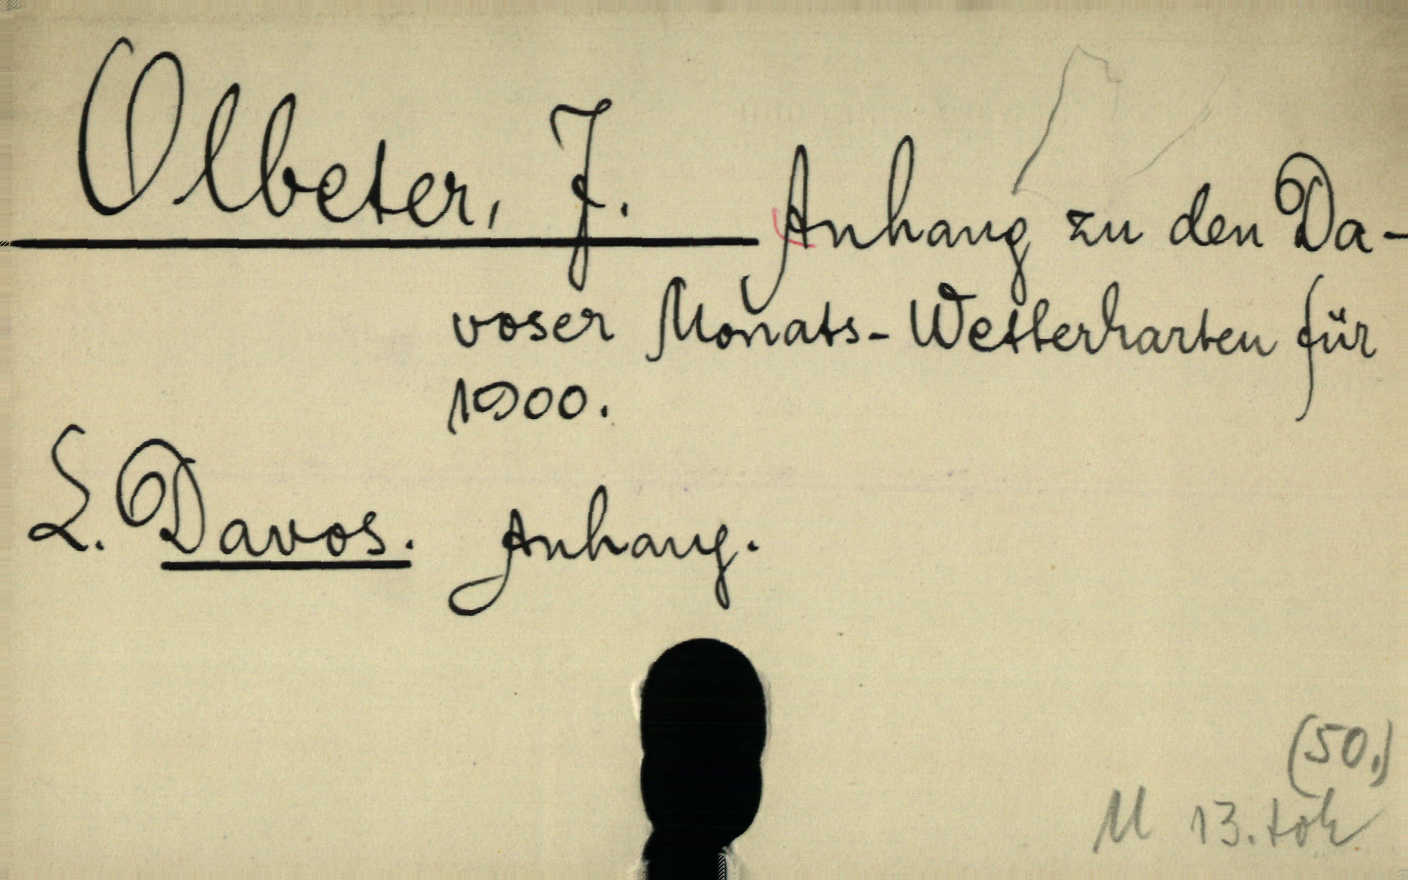 Olbeter, J. Anhang zu den Da-
voser Monats-Wetterkarten für
1900.
L. Davos. Anhang.
(50.)
M 13. tök